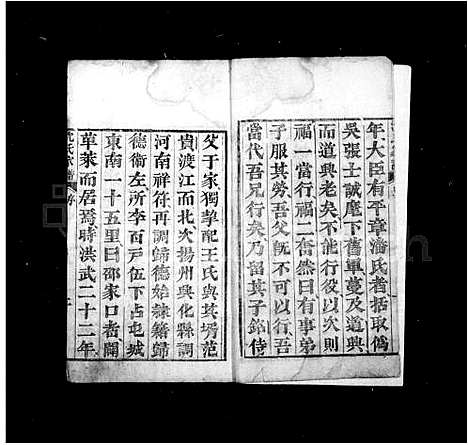 年大臣有平章潘氏者括取偽
吳張士誠麾下舊軍蔓及道興
而道興老矣不能行役以次則
福一當行福二奮然曰有事弟
子服其勞吾父旣不可以行吾
當代吾兄行矣乃留其子錦侍
父于家獨挈配王氏與其壻范
貴渡江而北次揚州興化縣調
河南祥符再調歸德始隸籍歸
德衞左所李百戸伍下占屯城
東南一十五里曰邵家口者闢
草萊而居焉時洪武二十二年
沈氏家譜 序